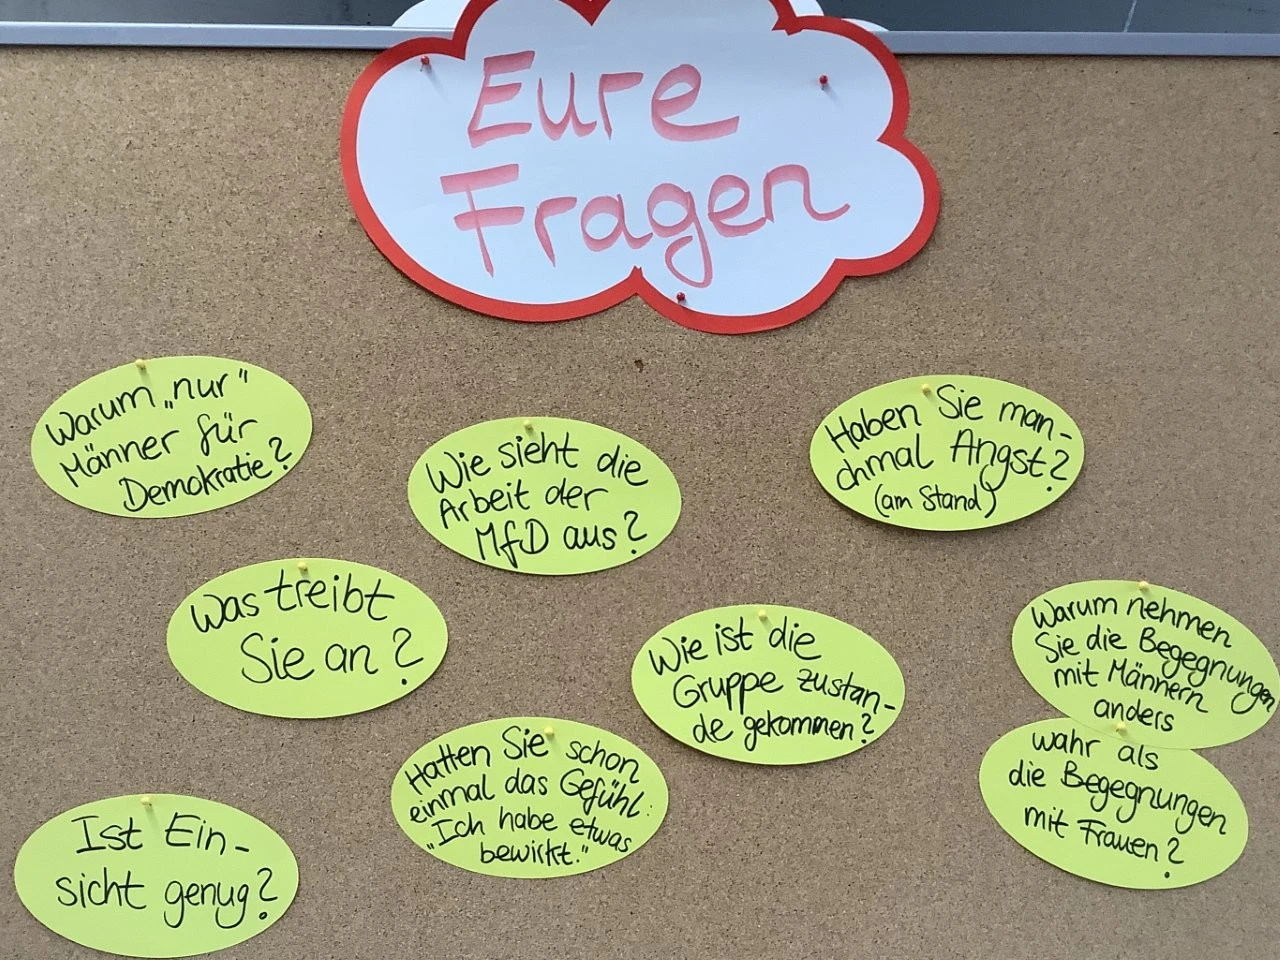 Eure
Fragen
Warum „nur"
Männer für
Demokratie?
Wie sieht die
Arbeit der
MfD aus?
Haben Sie man-
chmal Angst?
(am Stand)
Was treibt
Sie an?
Wie ist die
Gruppe zustan-
de gekommen?
Warum nehmen
Sie die Begegnungen
mit Männern
anders
wahr als
die Begegnungen
mit Frauen?
Hatten Sie schon
einmal das Gefühl:
„Ich habe etwas
bewirkt."
Ist Ein-
sicht genug?